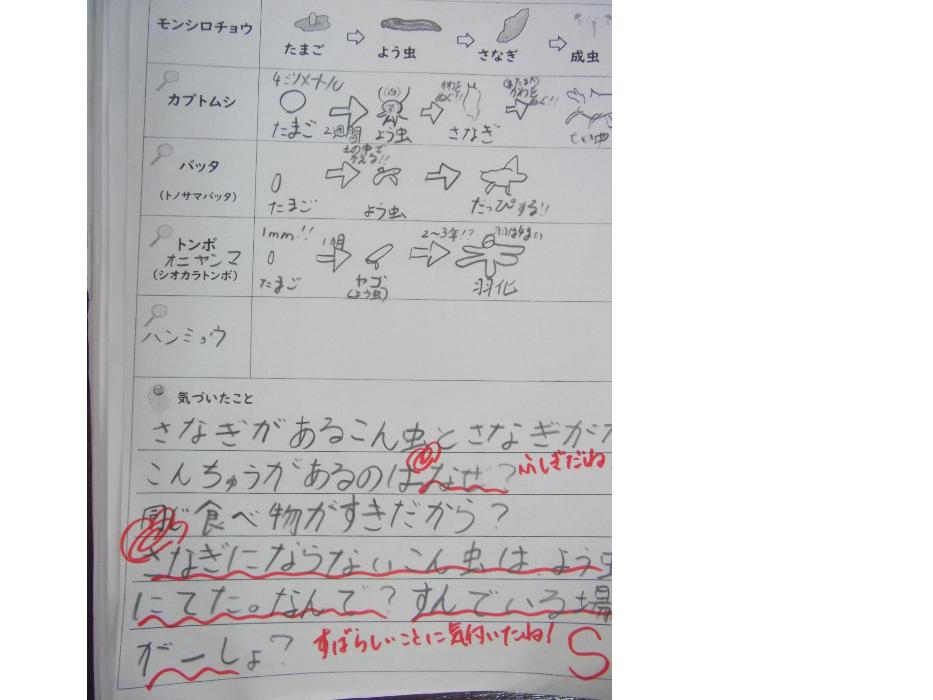 モンシロチョウ
たまご
よう虫
さなぎ
成虫
カブトムシ
4ミリメートル
たまご
2週間
よう虫
かわを
ぬぐ!!
さなぎ
かわを
ぬぐ!!
せい虫
バッタ
(トノサマバッタ)
たまご
土の中で
よう虫
だっぴする!!
トンボ
オニヤンマ
(シオカラトンボ)
1mm!!
たまご
ヤゴ
(よう虫)
2〜3年!?
羽化
ハンミョウ
気づいたこと
さなぎがあるこん虫とさなぎがな
こんちゅうがあるのはなぜ?
ふしぎだね
同じ食べ物がすきだから?
さなぎにならないこん虫は、よう虫
にてた。なんで?すんでいる場
がーしょ?
すばらしいことに気付いたね!
S